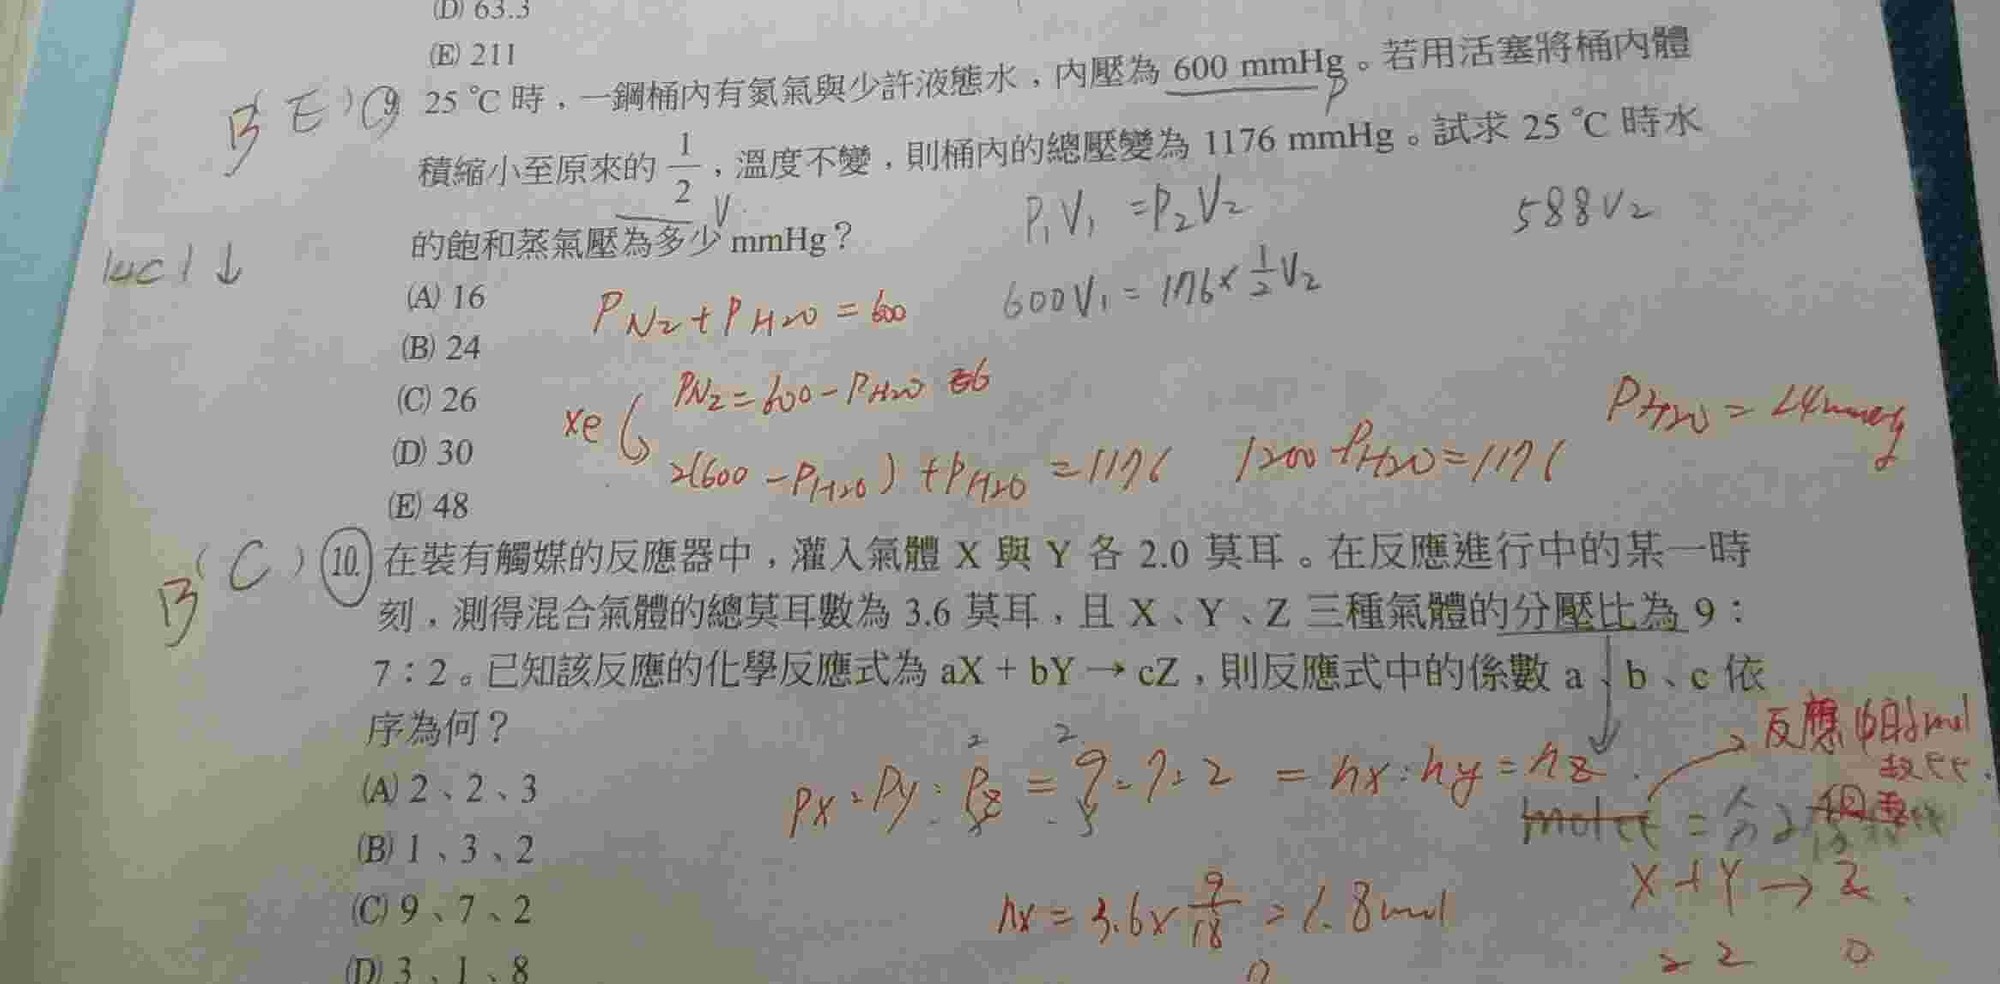 (D) 63.3
(E) 211
B E ) 9. 25 ℃ 時，一鋼桶內有氮氣與少許液態水，內壓為 600 mmHg。若用活塞將桶內體
P
積縮小至原來的 1/2，溫度不變，則桶內的總壓變為 1176 mmHg。試求 25 ℃ 時水
V
P₁V₁ = P₂V₂
588V₂
的飽和蒸氣壓為多少 mmHg？
↓
(A) 16
PN₂ + PH₂O = 600
600V₁ = 1176 × 1/2 V₂
(B) 24
(C) 26
PN₂ = 600 - PH₂O
PH₂O = 24mmHg
(D) 30
2(600 - PH₂O) + PH₂O = 1176
1200 - PH₂O = 1176
(E) 48
B ( C ) 10. 在裝有觸媒的反應器中，灌入氣體 X 與 Y 各 2.0 莫耳。在反應進行中的某一時
刻，測得混合氣體的總莫耳數為 3.6 莫耳，且 X、Y、Z 三種氣體的分壓比為 9：
7：2。已知該反應的化學反應式為 aX + bY → cZ，則反應式中的係數 a、b、c 依
序為何？
反應中的mol
2 2
Px : Py : Pz = 9 : 7 : 2 = nx : ny = nz
(A) 2、2、3
(B) 1、3、2
X + Y → Z
(C) 9、7、2
nx = 3.6 × 9/18 = 1.8mol
2 2 0
(D) 3、1、8